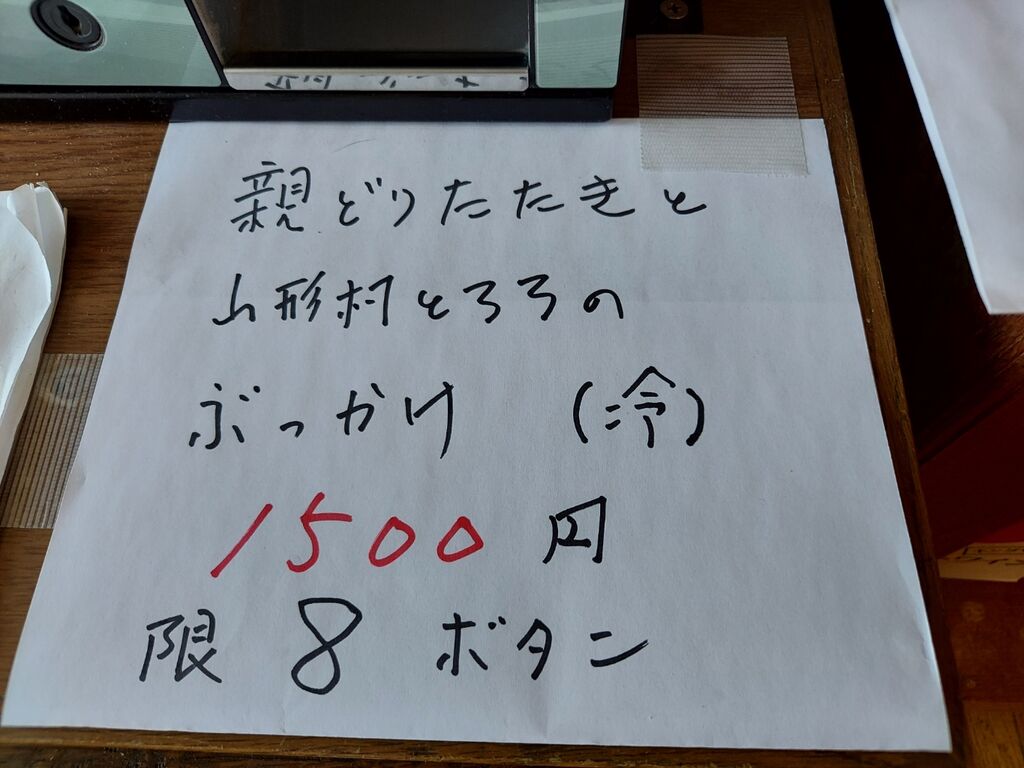 親どりたたきと
山形村とろろの
ぶっかけ (冷)
1500円
限 8 ボタン